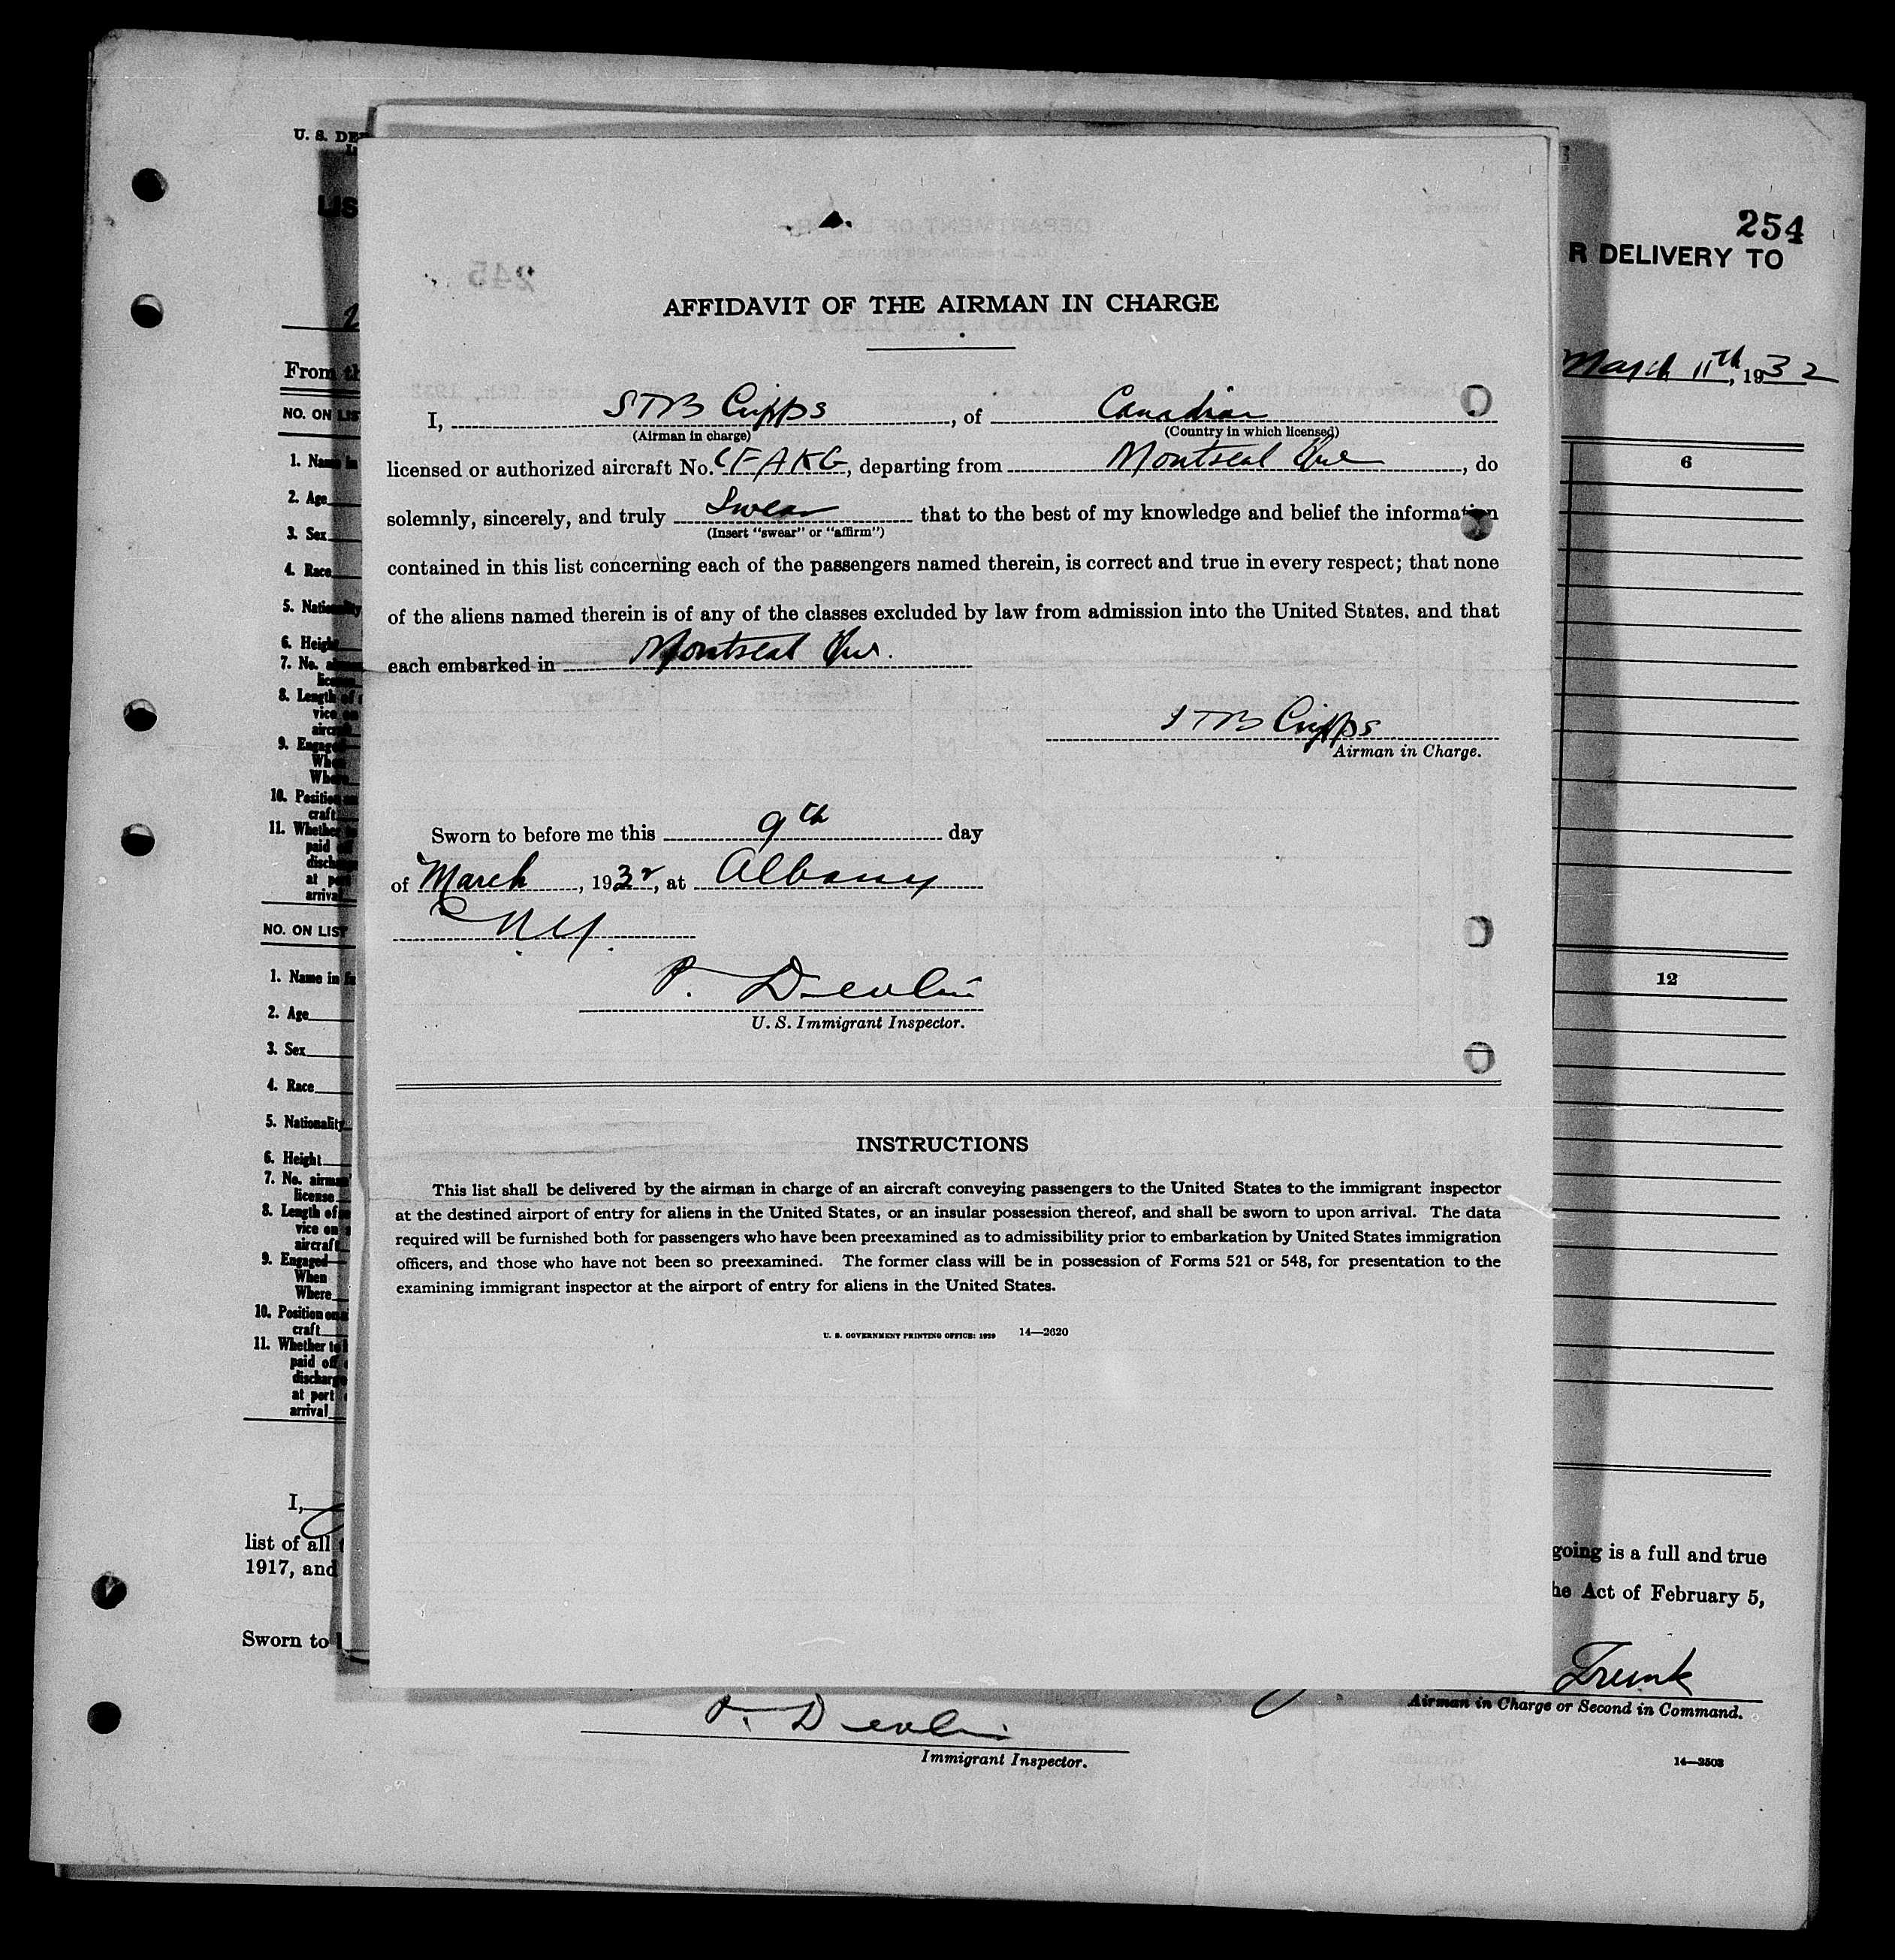 254
R DELIVERY TO
March 11th, 1932
6
12
going is a full and true
he Act of February 5,
Airman in Charge or Second in Command.
14—2503
U. S. DE
LIS
From th
NO. ON LIS
1. Name in
2. Age
3. Sex
4. Race
5. Nationality
6. Height
7. No. 
lice
8. Length of
vice on
aircraft
9. Engaged
When
Where
10. Position
craft
11. Whether
paid
disch
at po
arrival
NO. ON LIST
1. Name in
2. Age
3. Sex
4. Race
5. Nationality
6. Height
7. No. airman
license
8. Length of
vice on
aircraft
9. Engaged
When
Where
10. Position on
craft
11. Whether to
paid off
discharge
at port
arrival
I,
list of all
1917, and
Sworn to
AFFIDAVIT OF THE AIRMAN IN CHARGE
I, STB Cripps, of Canadian
(Airman in charge) (Country in which licensed)
licensed or authorized aircraft No. CFAKG, departing from Montreal Que, do
solemnly, sincerely, and truly Swear that to the best of my knowledge and belief the information
(Insert "swear" or "affirm")
contained in this list concerning each of the passengers named therein, is correct and true in every respect; that none
of the aliens named therein is of any of the classes excluded by law from admission into the United States, and that
each embarked in Montreal Que.
STB Cripps
Airman in Charge.
Sworn to before me this 9th day
of March, 1932, at Albany
NY.
P. Devlin
U. S. Immigrant Inspector.
INSTRUCTIONS
This list shall be delivered by the airman in charge of an aircraft conveying passengers to the United States to the immigrant inspector
at the destined airport of entry for aliens in the United States, or an insular possession thereof, and shall be sworn to upon arrival. The data
required will be furnished both for passengers who have been preexamined as to admissibility prior to embarkation by United States immigration
officers, and those who have not been so preexamined. The former class will be in possession of Forms 521 or 548, for presentation to the
examining immigrant inspector at the airport of entry for aliens in the United States.
U. S. GOVERNMENT PRINTING OFFICE: 1929 14—2620
P. Devlin
Immigrant Inspector.